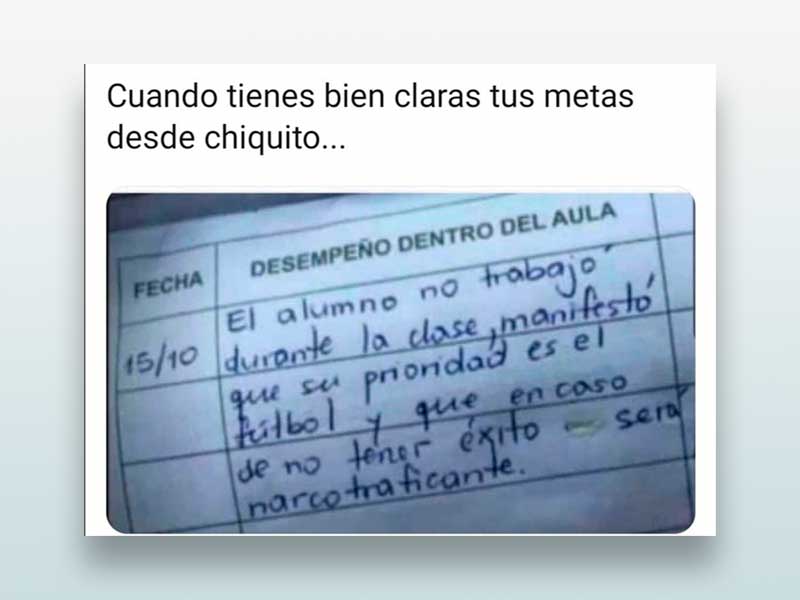 Cuando tienes bien claras tus metas
desde chiquito...
FECHA
DESEMPEÑO DENTRO DEL AULA
15/10
El alumno no trabajó
durante la clase, manifestó
que su prioridad es el
fútbol y que en caso
de no tener éxito será
narcotraficante.